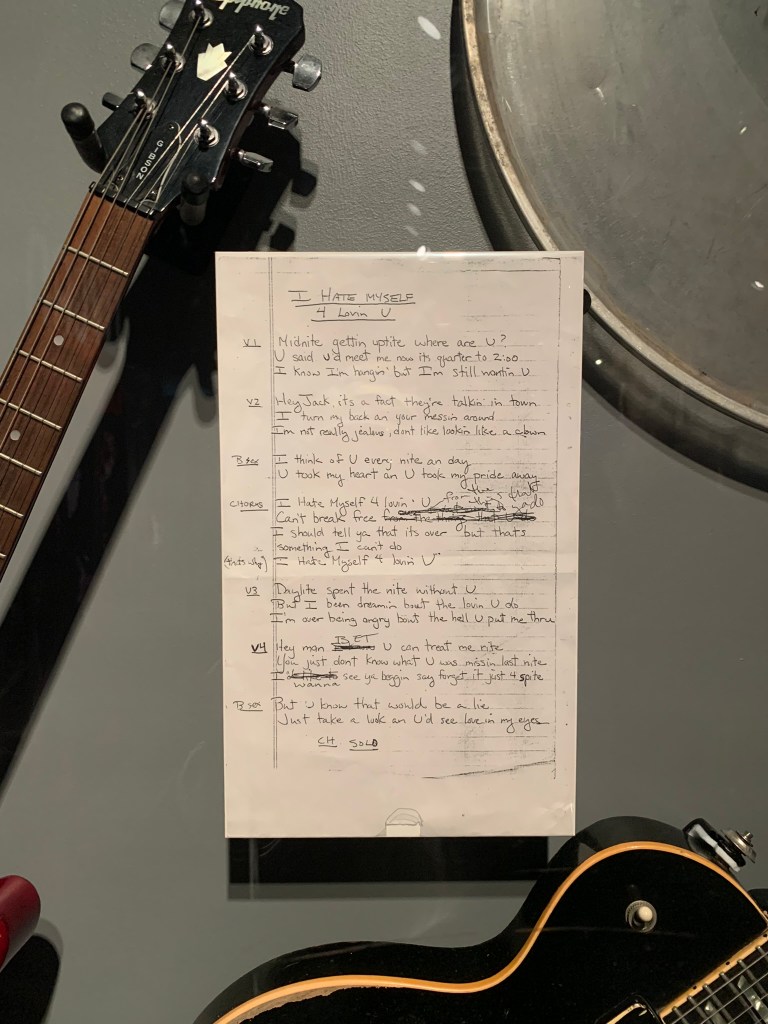 elpiphonE
GIBSON
I HATE MYSELF
4 Lovin U
V1 Midnite gettin uptite where are U?
U said U'd meet me now its quarter to 2:00
I know I'm hangin' but I'm still wantin U
V2 Hey Jack, its a fact they're talkin' in town
I turn my back an your messin around
I'm not really jealous, dont like lookin like a clown
B Sec I think of U every nite an day
U took my heart an U took my pride away
CHORUS I Hate Myself 4 lovin' U
Can't break free from the things that U do
I should tell ya that its over but thats
something I can't do
I Hate Myself 4 lovin U
V3 Daylite spent the nite without U
But I been dreamin bout the lovin U do
I'm over being angry bout the hell U put me thru
V4 Hey man BET U can treat me rite
You just dont know what U was missin last nite
I wanna see ya beggin say forget it just 4 spite
B sec But U know that would be a lie
Just take a look an U'd see love in my eyes
CH SOLO